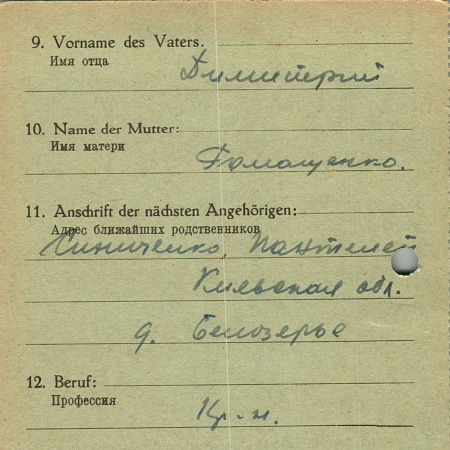 9. Vorname des Vaters.
Имя отца
Димитрий
10. Name der Mutter:
Имя матери
Ромащенко.
11. Anschrift der nächsten Angehörigen:
Адрес ближайших родственников
Синиченко, Пантелей
Киевская обл.
д. Белозерье
12. Beruf:
Профессия
Кр-н.